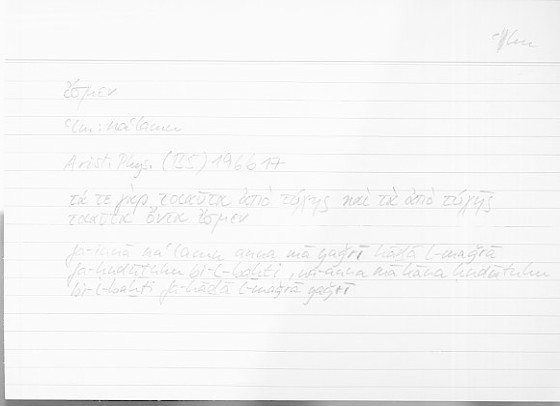 ʿlm
ἴσμεν
ʿlm : naʿlamu
Arist. Phys. (B5) 196b17
τά τε γὰρ τοιαῦτα ἀπὸ τύχης καὶ τὰ ἀπὸ τύχης
τοιαῦτα ὄντα ἴσμεν
fa-innā naʿlamu anna mā yaǧrī hāḏā l-maǧrā
fa-ḥudūṯuhu bi-l-baḫti, wa-anna mā kāna ḥudūṯuhu
bi-l-baḫti fa-hāḏā l-maǧrā yaǧrī